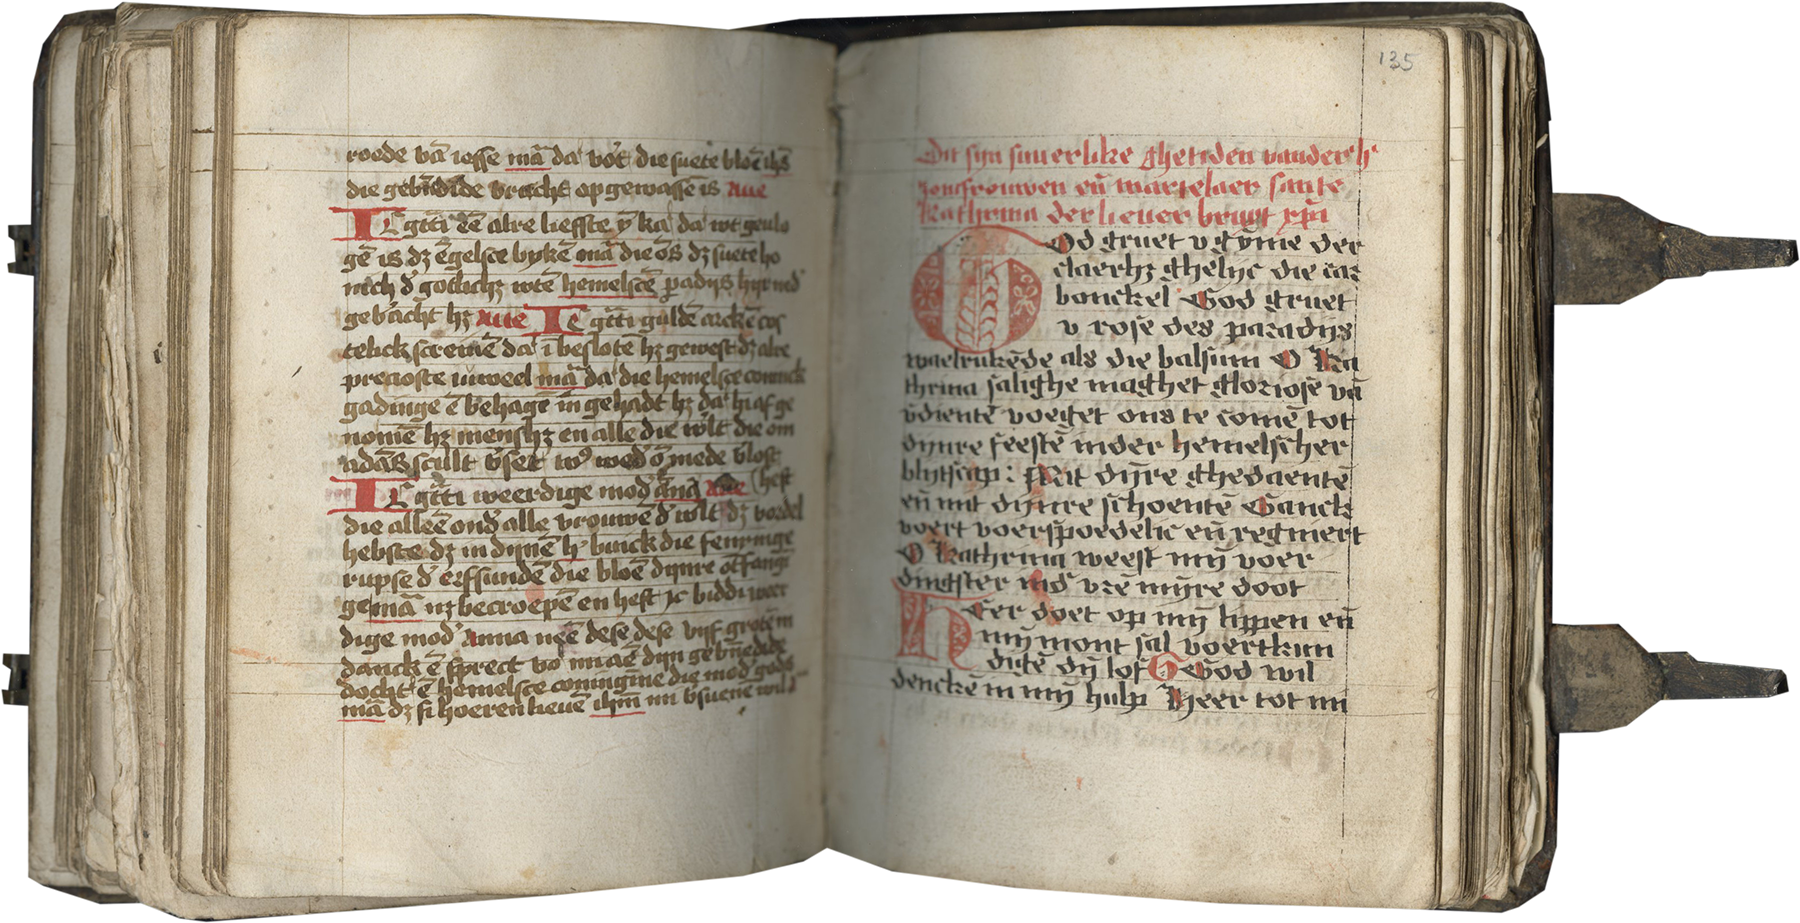 roede vā iesse mā da voͬt die suete bloē ihs
die gebn̄dide vrucht op gewassē is Aue
IC gtti ēē alre liefste ȳ ka da wt
gē is dz ēgelsce bykē mā die ōs dz suete ho
nich d' godlichz wtē hemelscē padijs hijr nid'
gebracht hz Aue Ic gtti guldē arckē cos
telick screinē da ī beslotē hz gewest dz alre
precioste iuweel mā da die hemelsce coninck
gadinge ē behagē in gehadt hz da hi af ge
nomē hz menshz en alle die w'lt die om
adās scult
IC gtti weerdige mod' āna Aue
die alleē ond' alle vrouwē d' w'lt dz vordel
hebste dz in dynē buick die fenringe
rupse d' erfsundē die bloē dynre ōtfangē
ge mā nz becroepē en heft Ic biddi weer
dige mod' Anna nēē dese dese vijf grotēn
danck ē sprect vo mi aē dijn gebn̄edide
docht' ē hemelsce coningine die mod' gods
mā dz si hoeren lieuē ihm mi
135
Dit syn suuerlike ghetiden vander h'
ioncfrouwen eñ martelaer sante
Kathrina der lieuer bruyt xpī
God gruet v gymme der
claerhz ghelijc die car
bonckel God gruet
v rose des paradijs
waelrukēde als die balsum O Ka
thrina salighe maghet gloriose vā
v̄dientē voeget ons te comē tot
dijnre feestē inder hemelscher
blijtscap: Mit dijre ghedaentē
eñ mit dijnre schoentē Ganck
voert voerspoedelic eñ regniert
O Kathrina weest mȳ voer
dingster nid' vrē mijre doot
Heer doet op mijn lippen eñ
mijn mont sal voertkun
digē dȳ lof God wil
denckē in mȳ hulp Heer tot mi